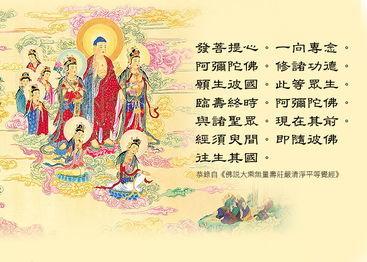 發菩提心。一向專念。
阿彌陀佛。修諸功德。
願生彼國。此等眾生。
臨壽終時。阿彌陀佛。
與諸聖眾。現在其前。
經須臾間。即隨彼佛
往生其國。
恭錄自《佛說大乘無量壽莊嚴清淨平等覺經》